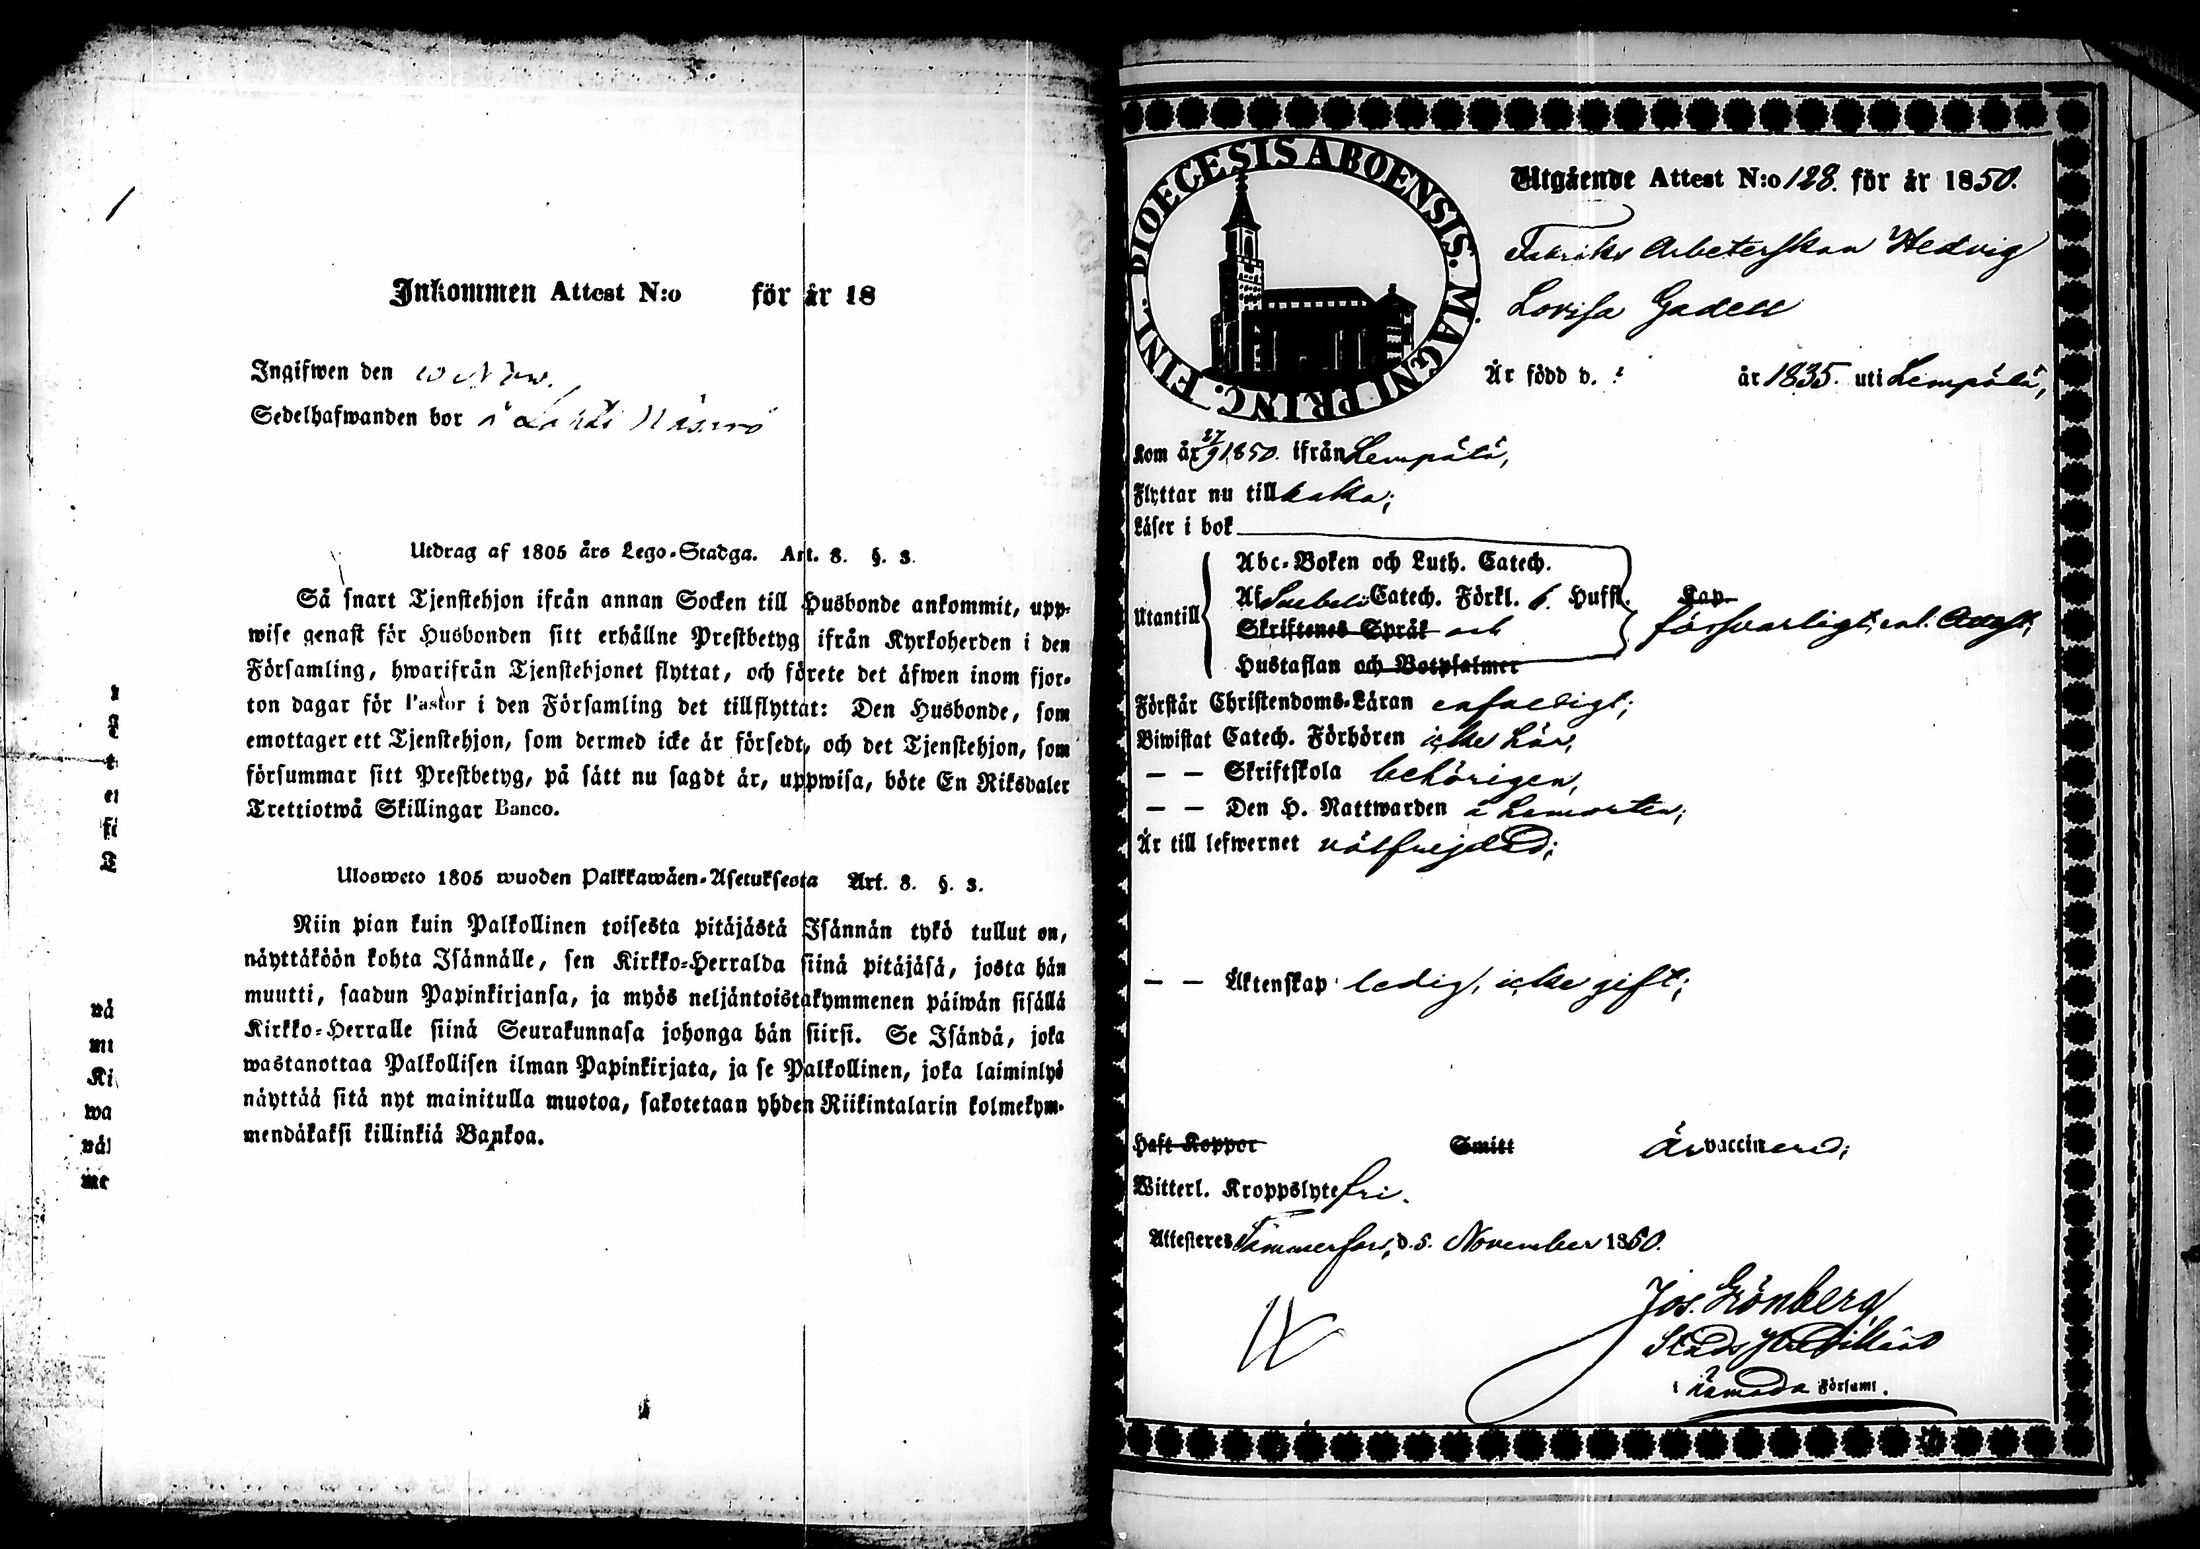 Inkommen Attest N:o för år 18
Ingifwen den 10 Nov.
Sedelhafwanden bor å Lahdis
Utdrag af 1805 års Lego-Stadga. Art. 8. §. 3.
Så snart Tjenstehjon ifrån annan Socken till Husbonde ankommit, upp-
wise genast för Husbonden sitt erhållne Prestbetyg ifrån Kyrkoherden i den
Församling, hwarifrån Tjenstehjonet flyttat, och förete det äfwen inom fjor-
ton dagar för Pastor i den Församling det tillflyttat: Den Husbonde, som
emottager ett Tjenstehjon, som dermed icke är försedt, och det Tjenstehjon, som
försummar sitt Prestbetyg, på sätt nu sagdt är, uppwisa, böte En Riksdaler
Trettiotwå Skillingar Banco.
Ulosweto 1805 wuoden Palkkawäen-Asetuksesta Art. 8. §. 3.
Niin pian kuin Palkollinen toisesta pitäjästä Isännän tykö tullut on,
näyttäköön kohta Isännälle, sen Kirkko-Herralda siinä pitäjäsä, josta hän
muutti, saadun Papinkirjansa, ja myös neljäntoistakymmenen päiwän sisällä
Kirkko-Herralle siinä Seurakunnasa johonga hän siirsi. Se Isändä, joka
wastanottaa Palkollisen ilman Papinkirjata, ja se Palkollinen, joka laiminlyö
näyttää sitä nyt mainitulla muotoa, sakotetaan yhden Riikintalarin kolmekym-
mendäkaksi killinkiä Bankoa.
DIOECESIS ABOENSIS. MAGNI PRINC. FINL.
Utgående Attest N:o 128. för år 1850.
Fabriks Arbeterskan Hedvig
Lovisa Gadell
Är född d. år 1835. uti Lempälä,
Kom år 27/9 1850. ifrån Lempälä,
Flyttar nu till baka;
Läser i bok
Utantill
Abc-Boken och Luth. Catech.
Af Svebelii Catech. Förkl. 6. Huffst.
Skriftenes Språk och
Hustaflan och Botpsalmer
Kap.
försvarligt, enl. Attest;
Förstår Christendoms-Läran enfaldigt;
Biwistat Catech. Förhören icke här,
— — Skriftskola behörigen,
— — Den H. Nattwarden å hemorten;
Är till lefwernet välfrejdad;
— — Äktenskap ledig, icke gift;
Haft Koppor Smitt är vaccinerad;
Witterl. Kroppslyte fri.
Attesteres Tammerfors, d. 5. November 1850.
Jos. Grönberg
Stads
i nämnda Församl.